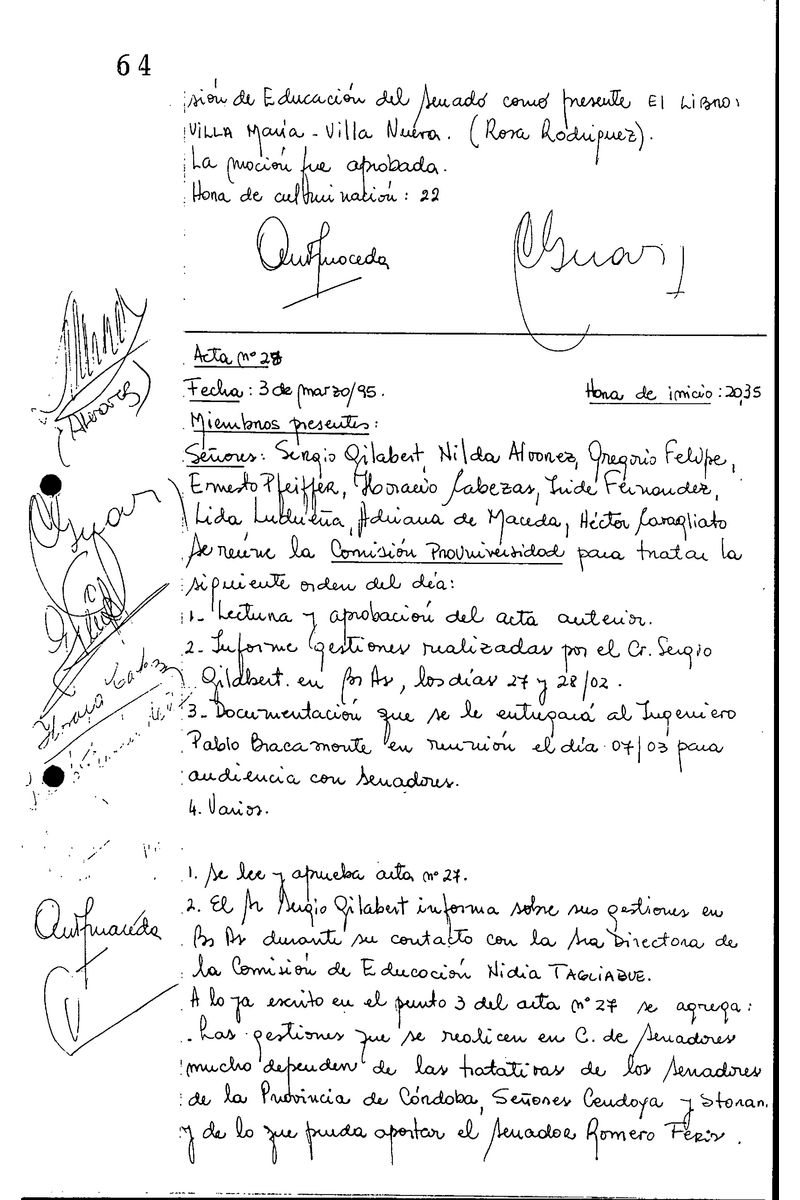 64
sión de Educación del Senado como presente El Libro:
Villa María - Villa Nueva. (Rosa Rodriguez).
La moción fue aprobada.
Hora de culminación: 22
Acta nº 28
Fecha: 3 de marzo/95. Hora de inicio: 20,35
Miembros presentes:
Señores: Sergio Gilabert, Nilda Alvarez, Gregorio Felipe,
Ernesto Pfeiffer, Horacio Cabezas, Iride Fernandez,
Lida Ludueña, Adriana de Maceda, Héctor Cavagliato
Se reúne la Comisión ProUniversidad para tratar la
siguiente orden del día:
1- Lectura y aprobación del acta anterior.
2- Informe gestiones realizadas por el Cr. Sergio
Gilabert en Bs As, los días 27 y 28/02.
3- Documentación que se le entregará al Ingeniero
Pablo Bracamonte en reunión el día 07/03 para
audiencia con Senadores.
4. Varios.
1. Se lee y aprueba acta nº 27.
2. El Sr Sergio Gilabert informa sobre sus gestiones en
Bs As durante su contacto con la Sra Directora de
la Comisión de Educación Nidia TAGLIABUE.
A lo ya escrito en el punto 3 del acta nº 27 se agrega:
. Las gestiones que se realicen en C. de Senadores
mucho dependen de las tratativas de los Senadores
de la Provincia de Córdoba, Señores Cendoya y Storan.
y de lo que pueda aportar el Senador Romero Feris.
(Alvarez)
Horacio Cabezas